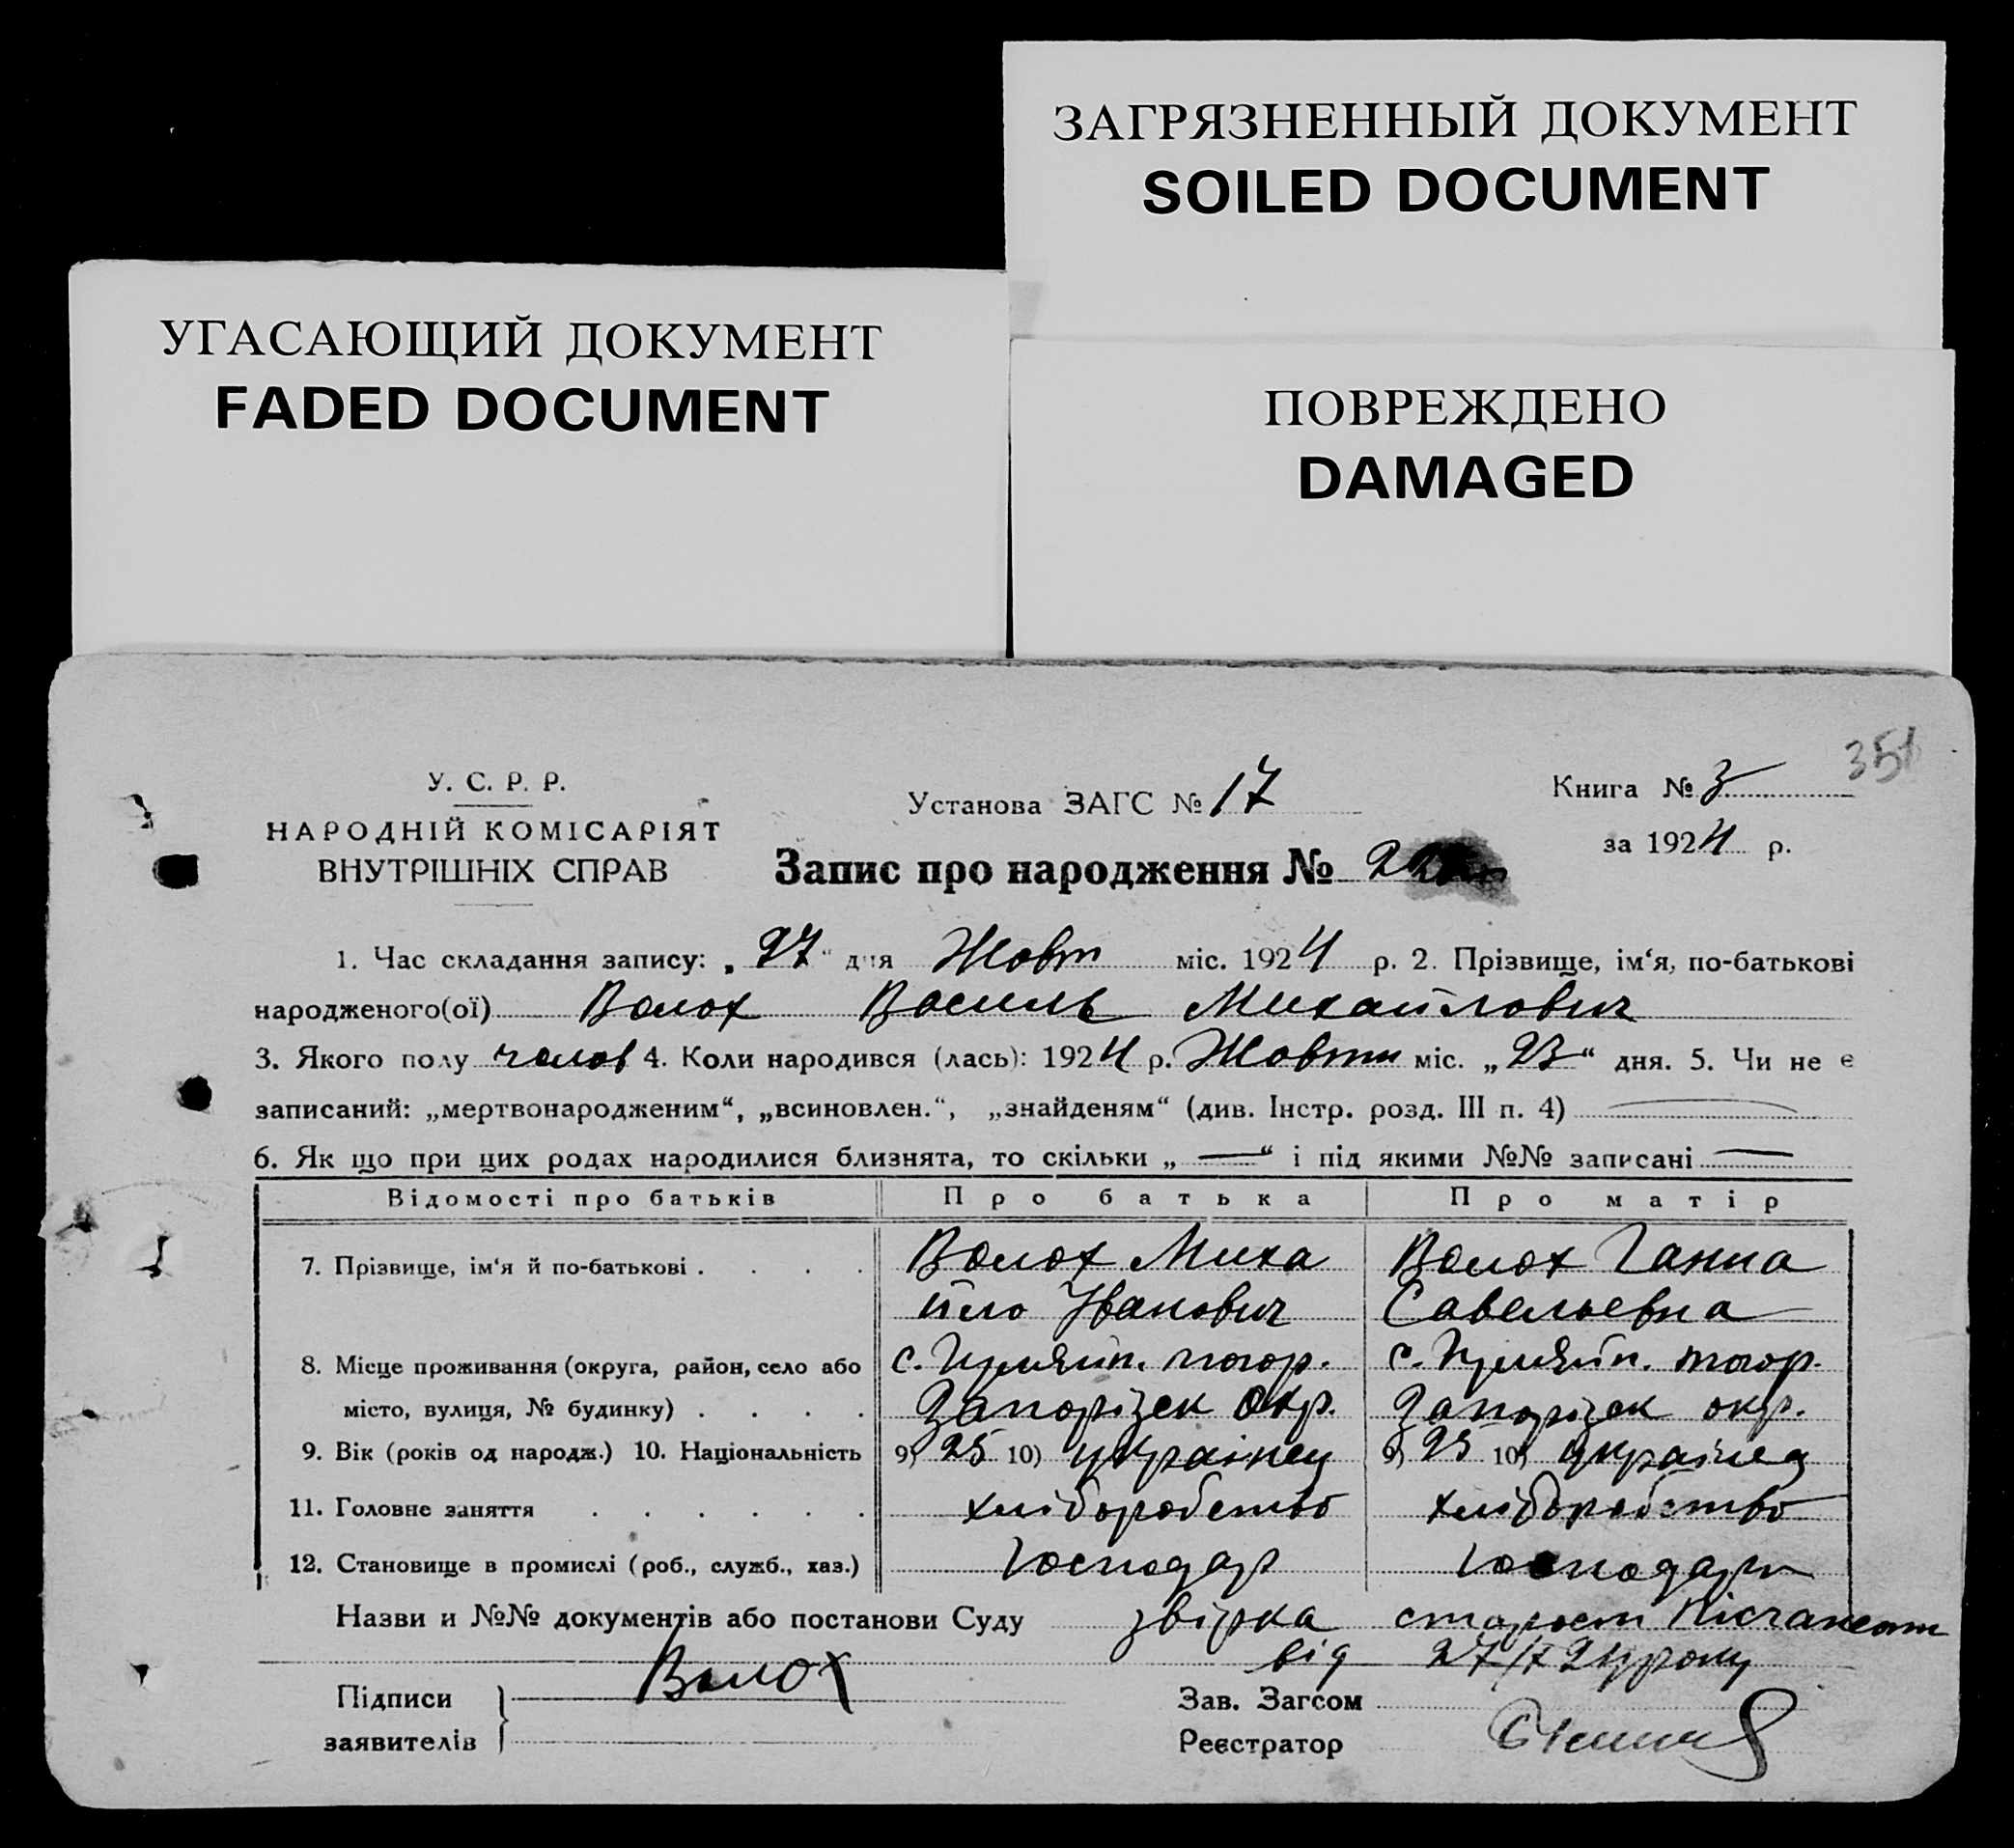 ЗАГРЯЗНЕННЫЙ ДОКУМЕНТ
SOILED DOCUMENT
УГАСАЮЩИЙ ДОКУМЕНТ
FADED DOCUMENT
ПОВРЕЖДЕНО
DAMAGED
351
У. С. Р. Р.
НАРОДНІЙ КОМІСАРІЯТ
ВНУТРІШНІХ СПРАВ
Установа ЗАГС № 17
Книга № 3
за 1924 р.
Запис про народження №
1. Час складання запису: „27“ дня Жовт міс. 1924 р. 2. Прізвище, ім‘я, по-батькові
народженого(ої) Волох Василь Михайлович
3. Якого полу чолов 4. Коли народився (лась): 1924 р. Жовтн міс. „23“ дня. 5. Чи не є
записаний: „мертвонародженим“, „всиновлен.“, „знайденям“ (див. Інстр. розд. III п. 4)
6. Як що при цих родах народилися близнята, то скільки „—“ і під якими №№ записані —
Відомості про батьків Про батька Про матір
7. Прізвище, ім‘я й по-батькові . . . . Волох Миха Волох Ганна
йло Іванович Савельевна
8. Місце проживання (округа, район, село або с. с.
місто, вулиця, № будинку) . . . . Запорізьк Окр. Запорізьк окр.
9. Вік (років од народж.) 10. Національність 9) 25 10) українец 9) 25 10)
11. Головне заняття . . . . . . хліборобство хліборобство
12. Становище в промислі (роб., служб., хаз.) Господар Господарк
Назви и №№ документів або постанови Суду звірка
від
Підписи Волох Зав. Загсом
заявителів Реєстратор